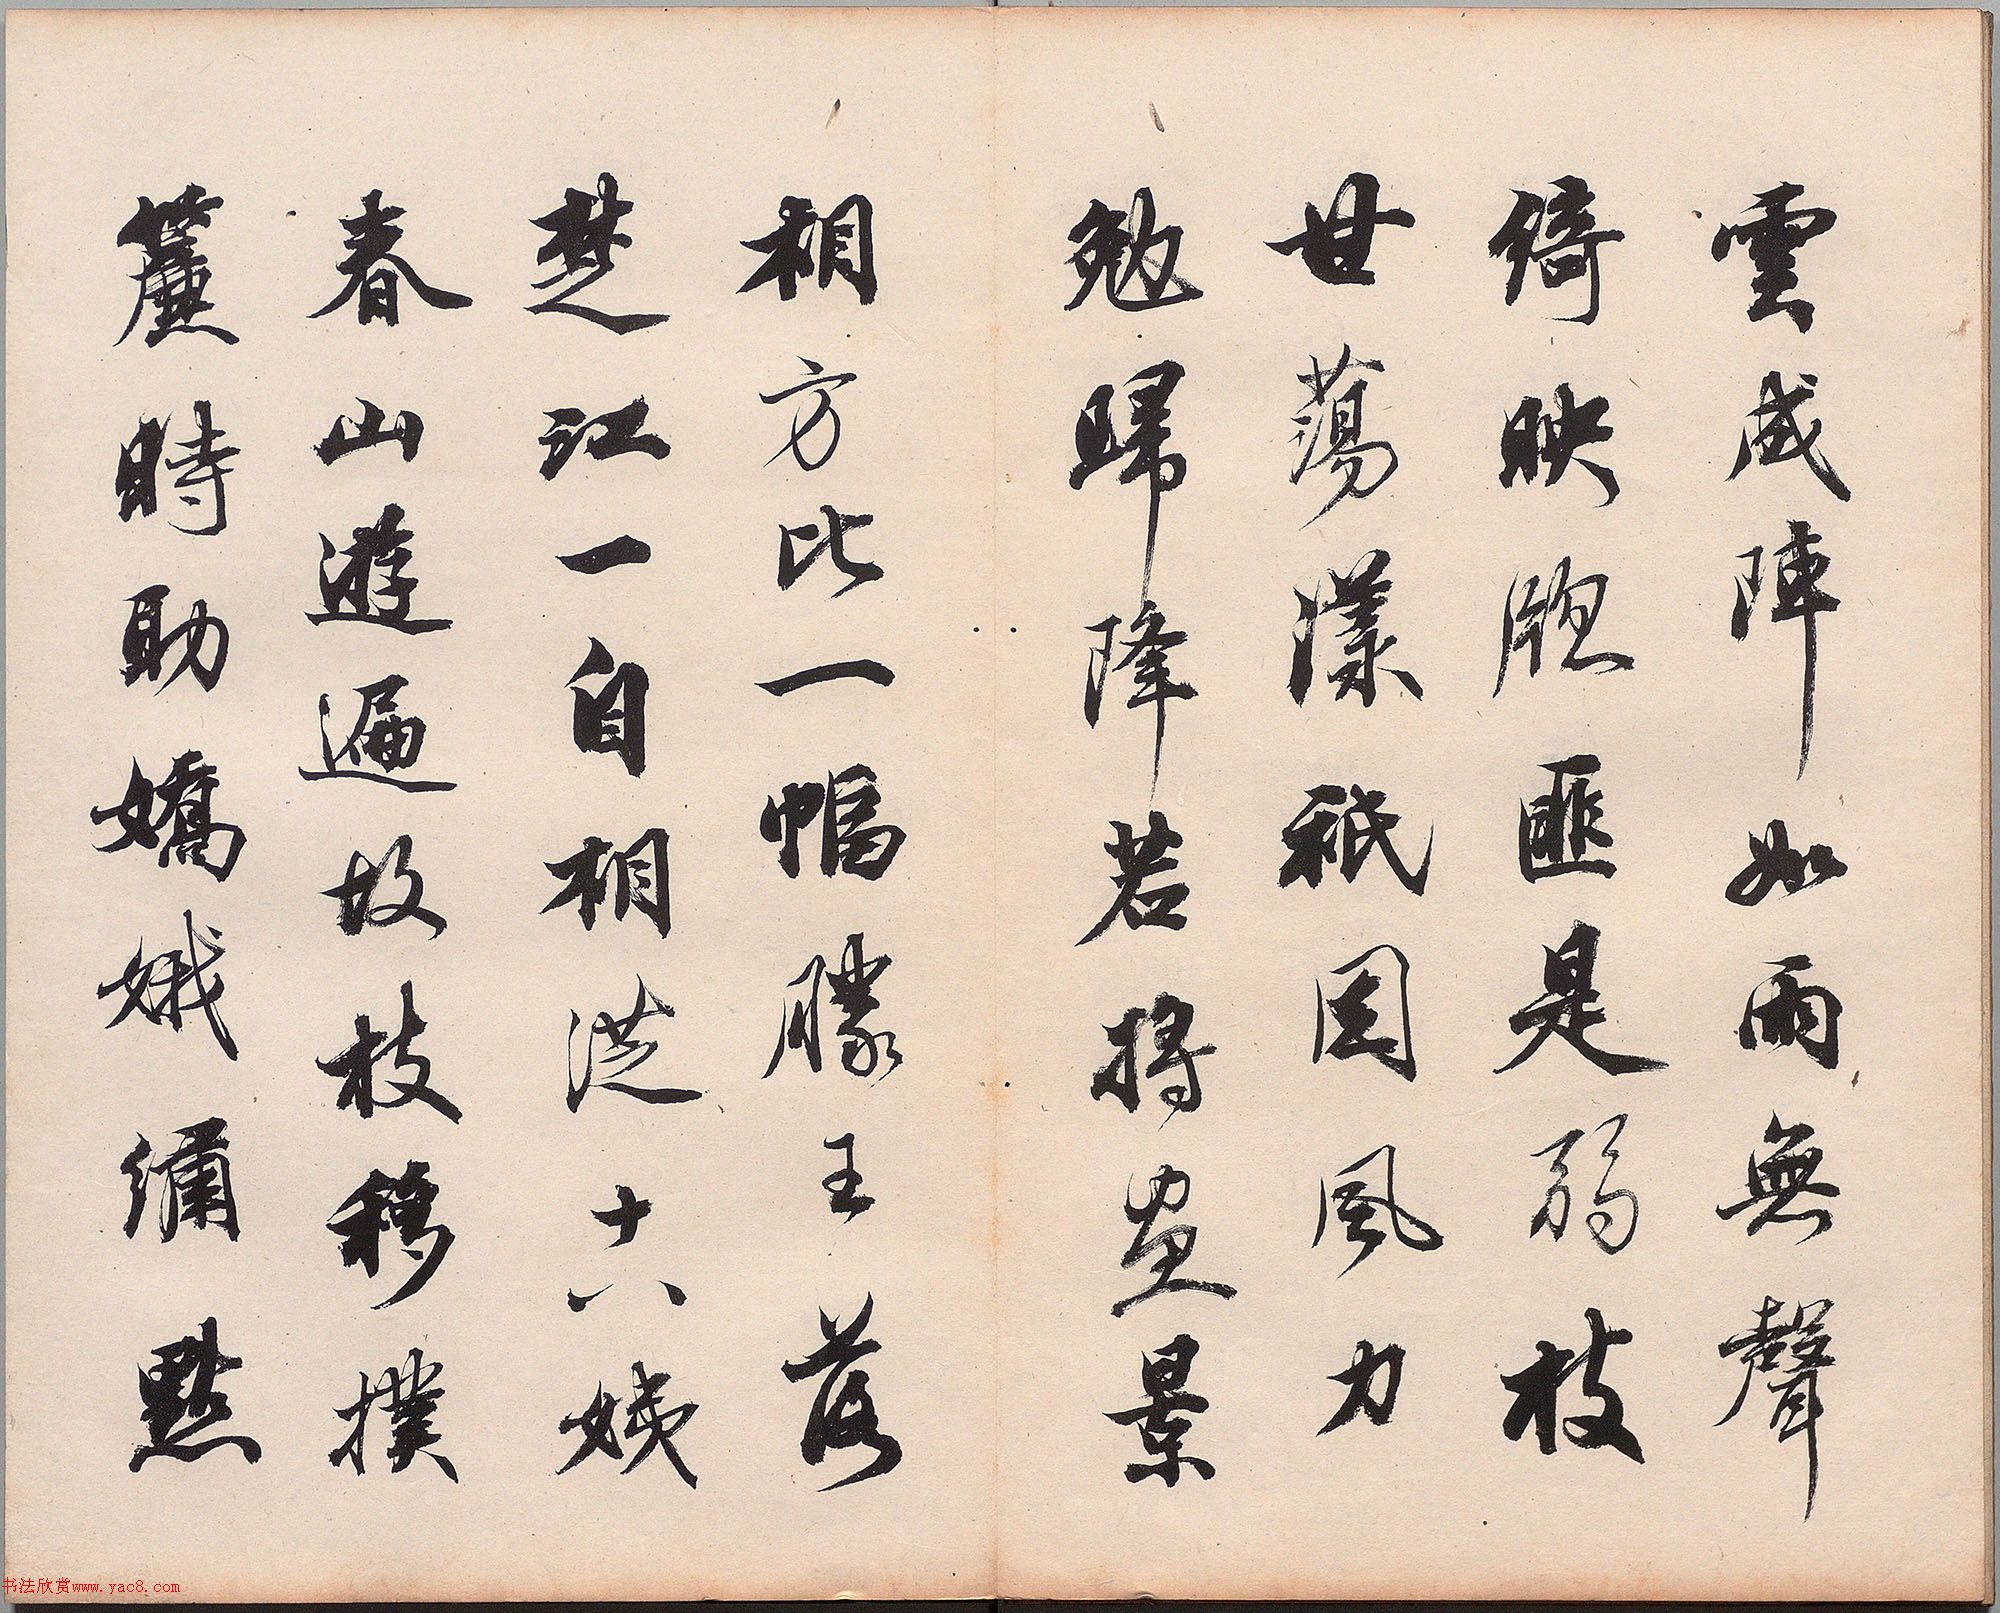 雲成陣如雨無聲
綺映牕匪是弱枝
甘蕩漾祇因風力
勉歸降若將畫景
相方比一幅滕王落
楚江一自相從十六姨
春山遊遍故枝移撲
簾時助嬌娥繡點
书法欣赏www.yac8.com